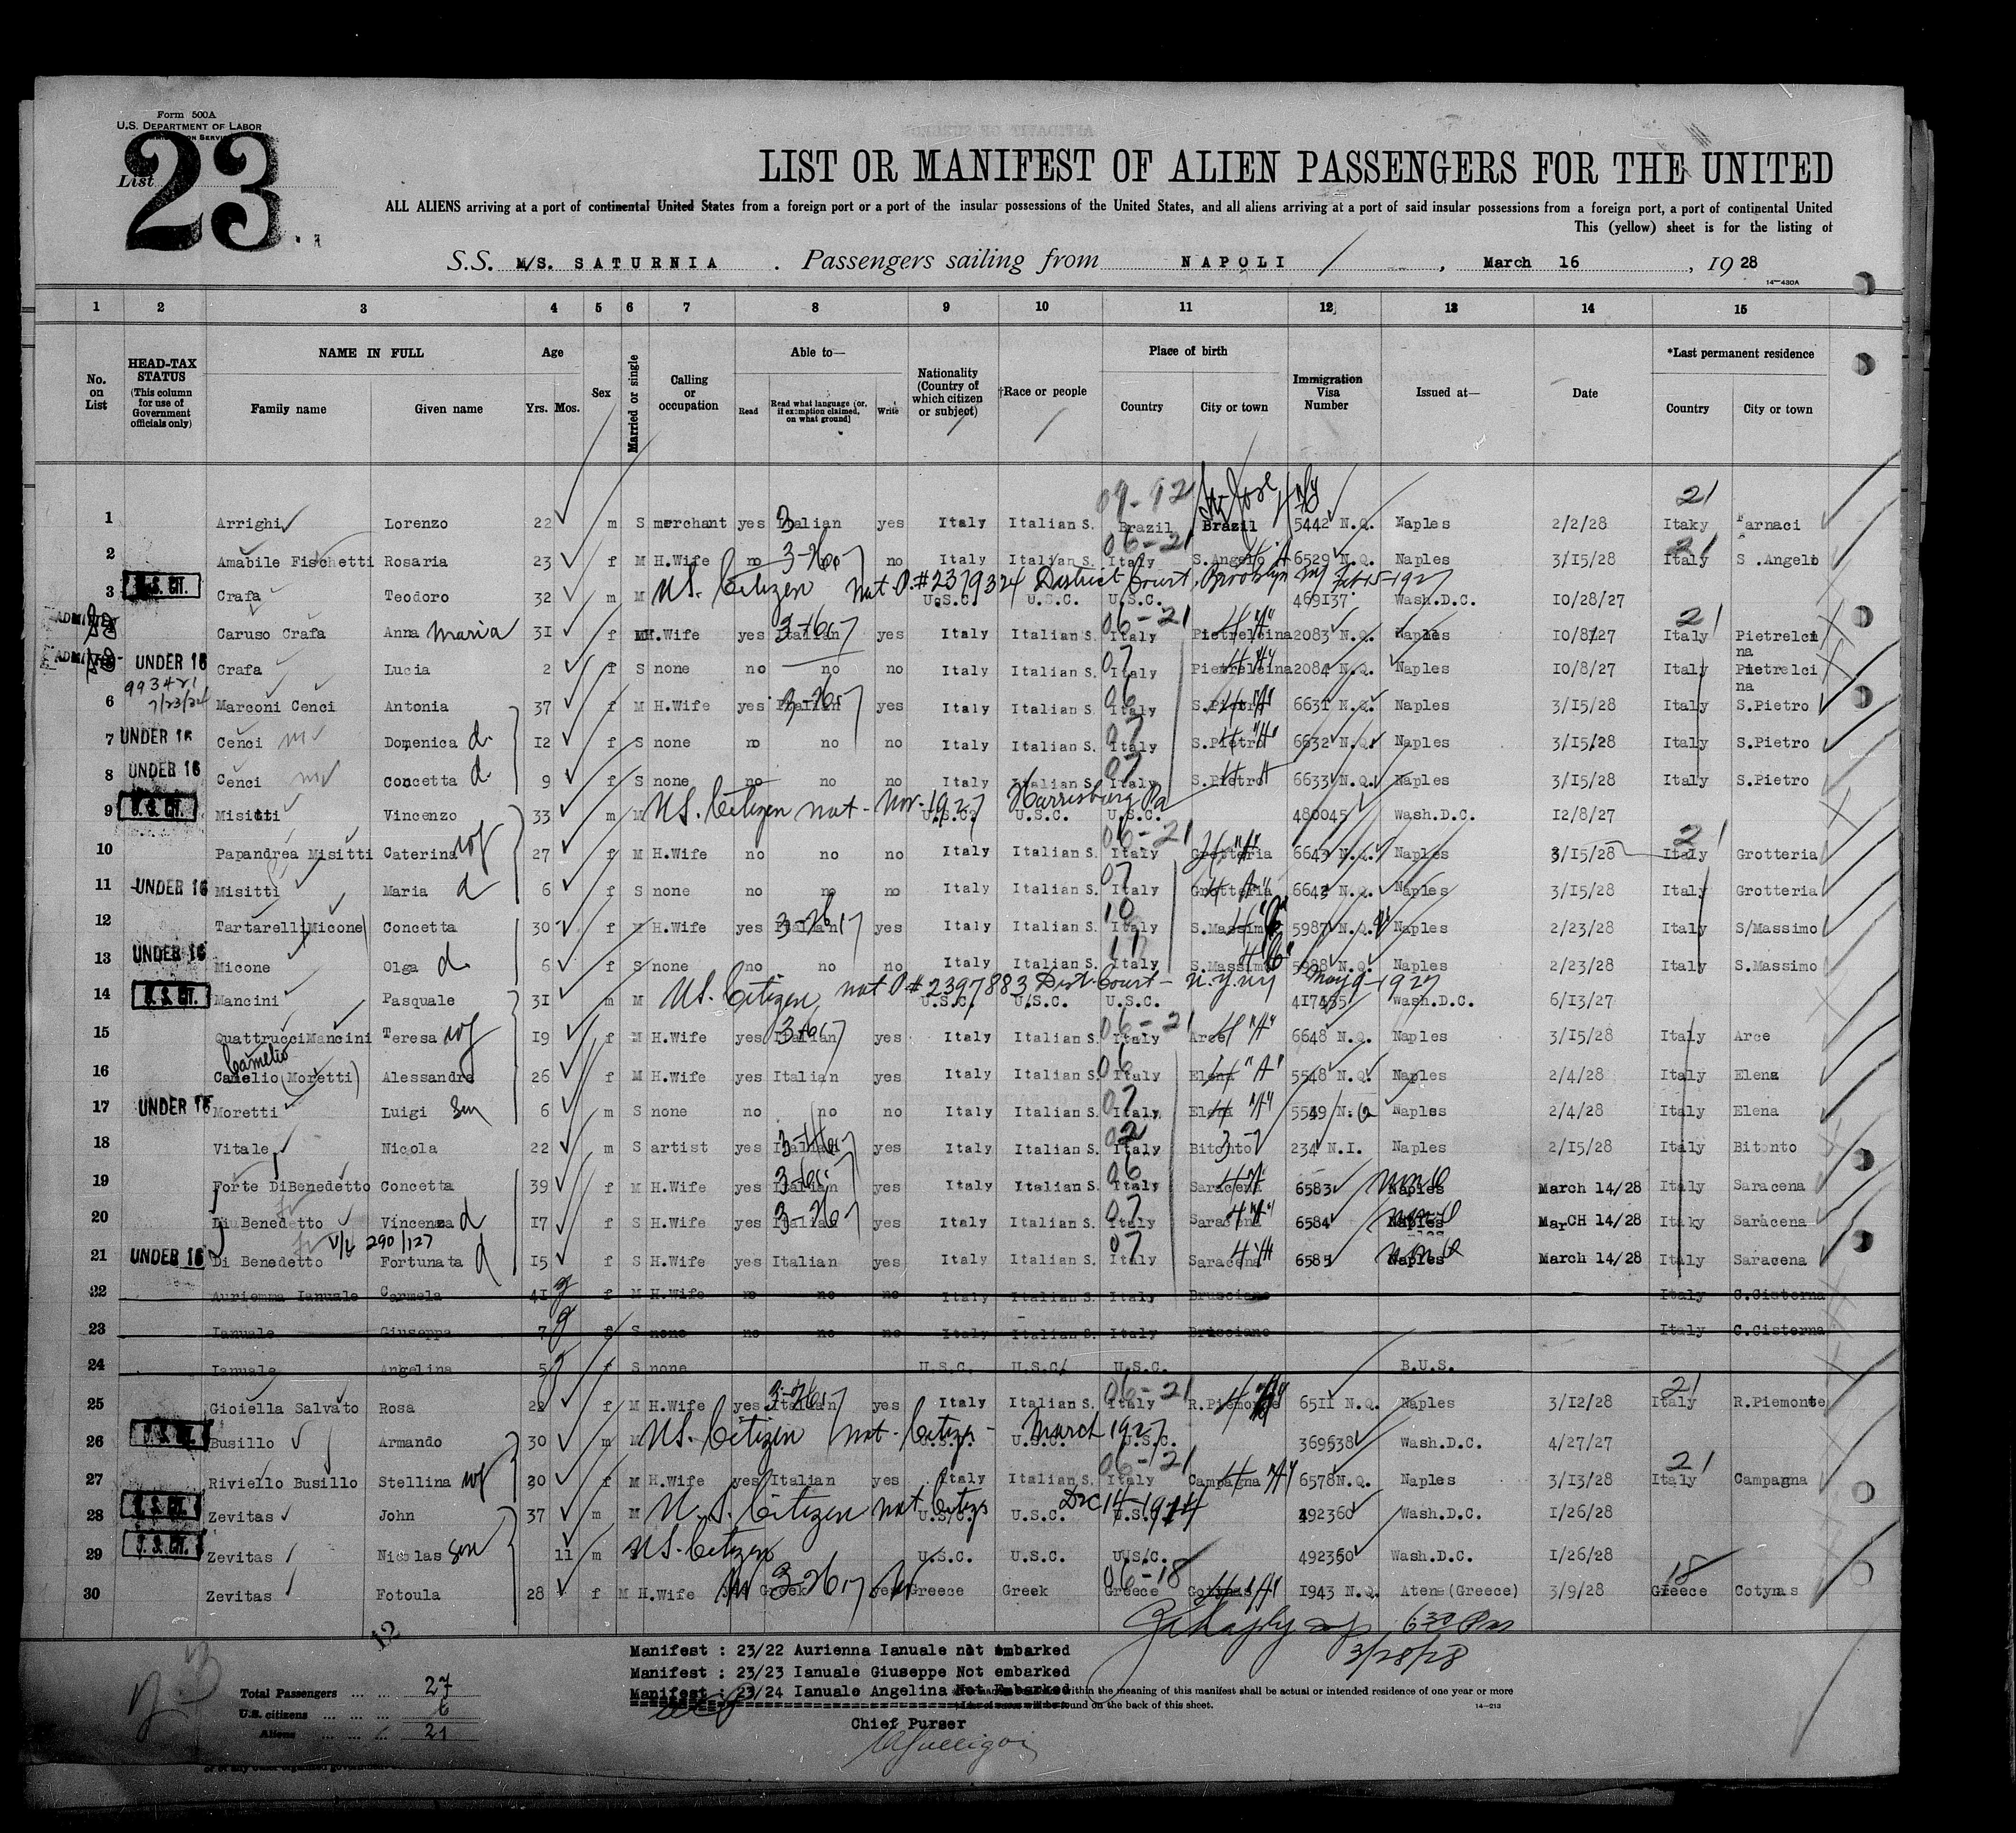 Form 500A
U.S. DEPARTMENT OF LABOR
List 23
LIST OR MANIFEST OF ALIEN PASSENGERS FOR THE UNITED
ALL ALIENS arriving at a port of continental United States from a foreign port or a port of the insular possessions of the United States, and all aliens arriving at a port of said insular possessions from a foreign port, a port of continental United
This (yellow) sheet is for the listing of
S.S. M/S. SATURNIA . Passengers sailing from NAPOLI , March 16 , 19 28
14—430A
1 2 3 4 5 6 7 8 9 10 11 12 13 14 15
No. on List
HEAD-TAX STATUS (This column for use of Government officials only)
NAME IN FULL Family name Given name
Age Yrs. Mos.
Sex
Married or single
Calling or occupation
Able to— Read Read what language (or, if exemption claimed, on what ground) Write
Nationality (Country of which citizen or subject)
†Race or people
Place of birth Country City or town
Immigration Visa Number
Issued at—
Date
*Last permanent residence Country City or town
1 Arrighi Lorenzo 22 m S merchant yes Italian yes Italy Italian S. Brazil Brazil 5442 N.Q. Naples 2/2/28 Itaky Farnaci
2 Amabile Fischetti Rosaria 23 f M H.Wife no no Italy Italian S. Italy S.Angelo 6529 N.Q. Naples 3/15/28 Italy S .Angelo
3 U.S. CIT. Crafa Teodoro 32 m M US. Citizen Nat. O.#2379324 District Court, Brooklyn NY Feb 15-1927 U.S.C. U.S.C. U.S.C. 469137 Wash.D.C. 10/28/27
ADMITTED Caruso Crafa Anna Maria 31 f M H.Wife yes Italian yes Italy Italian S. Italy Pietrelcina 2083 N.Q. Naples 10/8/27 Italy Pietrelcina
UNDER 16 Crafa Lucia 2 f S none no no no Italy Italian S. Italy Pietrelcina 2084 N.Q. Naples 10/8/27 Italy Pietrelcina
993421
7/23/24
6 Marconi Cenci Antonia 37 f M H.Wife yes Italian yes Italy Italian S. Italy S.Pietro 6631 N.Q. Naples 3/15/28 Italy S.Pietro
7 UNDER 16 Cenci Domenica d. 12 f S none no no no Italy Italian S. Italy S.Pietro 6632 N.Q. Naples 3/15/28 Italy S.Pietro
8 UNDER 16 Cenci Concetta d. 9 f S none no no no Italy Italian S. Italy S.Pietro 6633 N.Q. Naples 3/15/28 Italy S.Pietro
9 U.S. CIT. Misitti Vincenzo 33 m M US. Citizen nat - Nov-1927 Harrisburg Pa U.S.C. U.S.C. U.S.C. 480045 Wash.D.C. 12/8/27
10 Papandrea Misitti Caterina wf 27 f M H.Wife no no no Italy Italian S. Italy Grotteria 6643 N.Q. Naples 3/15/28 Italy Grotteria
11 UNDER 16 Misitti Maria d 6 f S none no no no Italy Italian S. Italy Grotteria 6642 N.Q. Naples 3/15/28 Italy Grotteria
12 Tartarelli(Micone) Concetta 30 f M H.Wife yes Italian yes Italy Italian S. Italy S.Massimo 5987 N.Q. Naples 2/23/28 Italy S/Massimo
13 UNDER 16 Micone Olga d. 6 f S none no no no Italy Italian S. Italy S.Massimo 5988 N.Q. Naples 2/23/28 Italy S.Massimo
14 U.S. CIT. Mancini Pasquale 31 m M US. Citizen nat O # 2397883 Dist. Court - N.Y. NY May 9-1927 U.S.C. U.S.C. U.S.C. 417435 Wash.D.C. 6/13/27
15 QuattrucciMancini Teresa wf 19 f M H.Wife yes Italian yes Italy Italian S. Italy Arce 6648 N.Q. Naples 3/15/28 Italy Arce
Camelio
16 Camelio (Moretti) Alessandra 26 f M H.Wife yes Italian yes Italy Italian S. Italy Elena 5548 N.Q. Naples 2/4/28 Italy Elena
17 UNDER 16 Moretti Luigi Son 6 m S none no no no Italy Italian S. Italy Elena 5549 N.Q Naples 2/4/28 Italy Elena
18 Vitale Nicola 22 m S artist yes Italian yes Italy Italian S. Italy Bitonto 234 N.I. Naples 2/15/28 Italy Bitonto
19 Forte DiBenedetto Concetta 39 f M H.Wife yes Italian yes Italy Italian S. Italy Saracena 6583 Naples March 14/28 Italy Saracena
20 Di Benedetto Vincenza d 17 f S H.Wife yes Italian yes Italy Italian S. Italy Saracena 6584 Naples MarCH 14/28 Itaky Saracena
V/L 290/127
21 UNDER 16 Di Benedetto Fortunata d 15 f S H.Wife yes Italian yes Italy Italian S. Italy Saracena 6585 Naples March 14/28 Italy Saracena
22 Auriemma Ianuale Carmela 41 f M H.Wife no no no Italy Italian S. Italy Brusciano Italy C.Cisterna
23 Ianuale Giuseppa 7 f S none no no no Italy Italian S. Italy Brusciano Italy C.Cisterna
24 Ianuale Angelina 5 f S none U.S.C. U.S.C. U.S.C. B.U.S.
25 Gioiella Salvato Rosa 22 f M H.Wife yes Italian yes Italy Italian S. Italy R.Piemonte 6511 N.Q. Naples 3/12/28 Italy R.Piemonte
26 Busillo Armando 30 m M US. Citizen nat. Citizs - March 1927 U.S.C. U.S.C. U.S.C. 369538 Wash.D.C. 4/27/27
27 Riviello Busillo Stellina wf 30 f M H.Wife yes Italian yes Italy Italian S. Italy Campagna 6578 N.Q. Naples 3/13/28 Italy Campagna
28 U.S. CIT. Zevitas John 37 m M U.S. Citizen nat. Citizs Dec 14-1914 U.S.C. U.S.C. U.S.C. 492360 Wash.D.C. 1/26/28
29 U.S. CIT. Zevitas Nicolas Son 11 m US. Citizen U.S.C. U.S.C. U.S.C. 492360 Wash.D.C. 1/26/28
30 Zevitas Fotoula 28 f M H.Wife Greek Greece Greek Greece 1943 N.Q. Atene(Greece) 3/9/28 Greece Cotynas
6:30 Pm
3/28/28
Manifest : 23/22 Aurienna Ianuale not embarked
Manifest : 23/23 Ianuale Giuseppe Not embarked
Manifest : 23/24 Ianuale Angelina Not Embarked
within the meaning of this manifest shall be actual or intended residence of one year or more
found on the back of this sheet.
14—213
Total Passengers ... ... 27
U.S. citizens ... ... ... 6
Aliens ... ... ... 21
Chief Purser